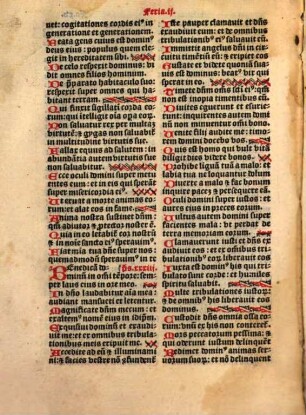 Feria.ij.
net: cogitationes cordis ei⁹ in
generatione et generationem.
Beata gens cuius est dominus
deus eius: populus quem elegit
in hereditatem sibi.
De celo respexit dominus: vidit
omnes filios hominum.
De preparato habitaculo suo:
respexit super omnes qui habitant
terram.
Qui finxit sigillati corda eorum:
qui intelligit oīa opa eoꝝ.
Non saluatur rex per multaꝫ
virtutē: ⁊ gygas non saluabit̄ in
multitudine virtutis sue.
Fallax equus ad salutem: in
abundātia autem virtutis sue
non saluabitur.
Ecce oculi domini super metuentes
eum: et in eis qui sperāt
super misericordia ei⁹.
Ut eruat a morte animas eorum:
et alat eos in fame.
Anima nostra sustinet dnm̄:
qm̄ adiutor ⁊ protector noster ē.
Quia in eo letabit̄ cor nostrū:
⁊ in noīe sancto ei⁹ sperauim⁹.
Fiat mīa tua dn̄e super nos:
quemadmodū sperauim⁹ in te.
Benedicā dn̄m ps.xxxiii.
in omni tēpore: semper
laus eius in ore meo.
In dn̄o laudabitur aīa mea:
audiant mansueti et letentur.
Magnificate dn̄m mecum: et
exaltem⁹ nomē eius in idipm̄.
Exquisiui dominū et exaudiuit
me: et ex omnibus tribulationibus
meis eripuit me.
Accedite ad eū ⁊ illuminamini:
⁊ facies vestre nō ꝯfundent̄
Iste pauper clamauit et dn̄s
exaudiuit eum: et de omnibus
tribulationib⁹ ei⁹ saluauit eū.
Immittit angelus dn̄i in circuitu
timētiū eū: ⁊ eripiet eos
Gustate et videte quoniā suauis
est dominus: beat⁹ vir qui
sperat in eo.
Timete dn̄m oēs sctī ei⁹: qm̄
non est inopia timentibus eū.
Diuites eguerunt et esurierūt:
inquirentes autem dn̄m
nō minuentur om̄i bono.
Uenite filij audite me: timorem
domini docebo vos.
Quis est homo qui vult vitā:
diligit dies videre bonos.
Prohibe linguā tuā a malo: et
labia tua ne loquantur dolum
Diuerte a malo ⁊ fac bonum:
inquire pacē ⁊ persequere eā.
Oculi domini super iustos: et
aures eius in preces eorum.
Uultus autem domini super
facientes mala: vt perdat de
terra memoriam eorum.
Clamauerunt iusti et dn̄s exaudiuit
eos: et ex omnibus tribulationib⁹
eoꝝ liberauit eos
Iuxta est domin⁹ his qui tribulato
sunt corde: et humiles
spiritu saluabit.
Multe tribulationes iustoꝝ:
⁊ de omnib⁹ his liberauit eos
dominus.
Custodit dn̄s omnia ossa eorum:
vnū ex his non conteret̄.
Mors peccatorum pessima: ⁊
qui oderunt iustum delinquēt
Redimet domin⁹ animas seruorum
suoꝝ: et nō delinquent